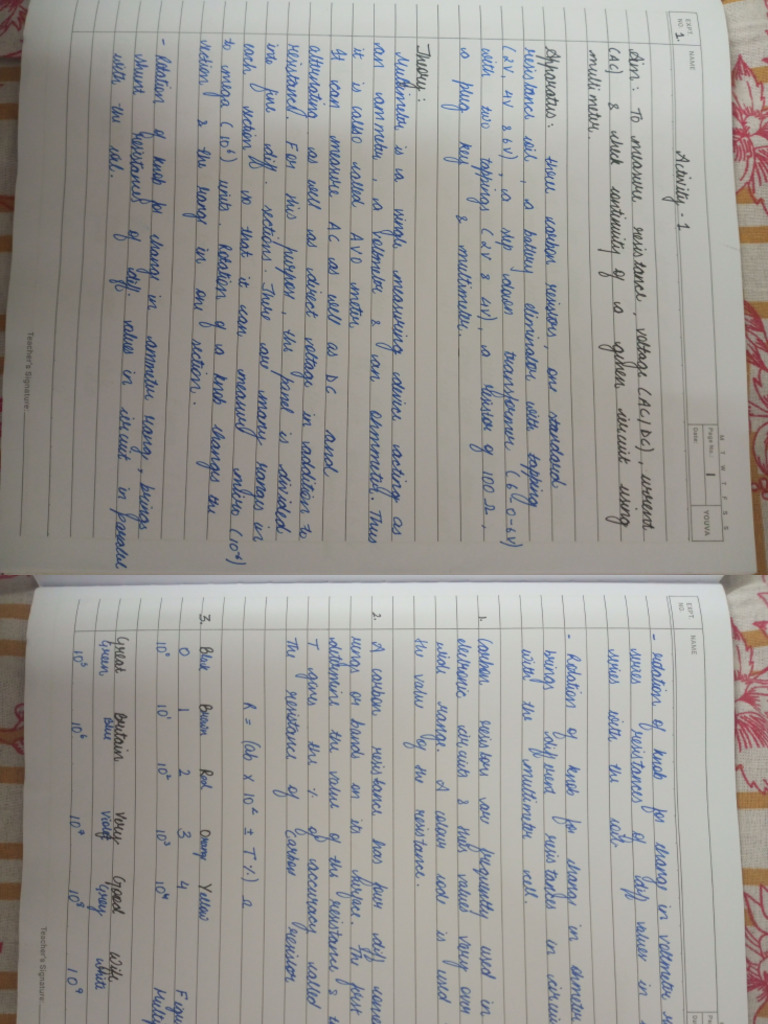 EXPT. NO. 1. NAME
M T W T F S S
Page No.: 1
Date:
YOUVA
Activity - 1
Aim : To measure resistance, voltage (AC/DC), current
(AC) & check continuity of a given circuit using
multimeter.
Apparatus : three carbon resistors, one standard
resistance coil, a battery eliminator with tapping
(2V, 4V & 6V), a step down transformer (6-0-6V)
with two tappings (2V & 4V), a resistor of 100 Ω,
a plug key & multimeter.
Theory :
Multimeter is a single measuring device acting as
an ammeter, a voltmeter & an ohmmeter. Thus
it is also called AVO meter
It can measure AC as well as DC and
alternating as well as direct voltage in addition to
resistance. For this purpose, the panel is divided
into five diff. sections. There are many ranges in
each section so that it can measure micro (10⁻⁶)
to mega (10⁶) units. Rotation of a knob changes the
section & the range in one section.
- Rotation of knob for change in ammeter rang, brings
shunt resistances of diff. values in circuit in parallel
with the coil.
Teacher's Signature:
EXPT. NO. NAME
- rotation of knob for change in voltmeter
series resistances of diff values in
series with the coil.
- Rotation of knob for change in ohmmeter
brings different resistances in circuit
with the multimeter cell.
1. Carbon resistors are frequently used in
electronic circuits & their values vary over
wide range. A colour code is used
the value of the resistance.
2. A carbon resistance has four diff
rings or bands on its surface. The first
determine the value of the resistance &
T gives the % of accuracy called
The resistance of Carbon resistor
R = (ab x 10ᶜ ± T %) Ω
3. Black Brown Red Orange Yellow
0 1 2 3 4
10⁰ 10¹ 10² 10³ 10⁴
Great Britain Very Good Wife
Green Blue Violet Gray White
10⁵ 10⁶ 10⁷ 10⁸ 10⁹
Teacher's Signature: